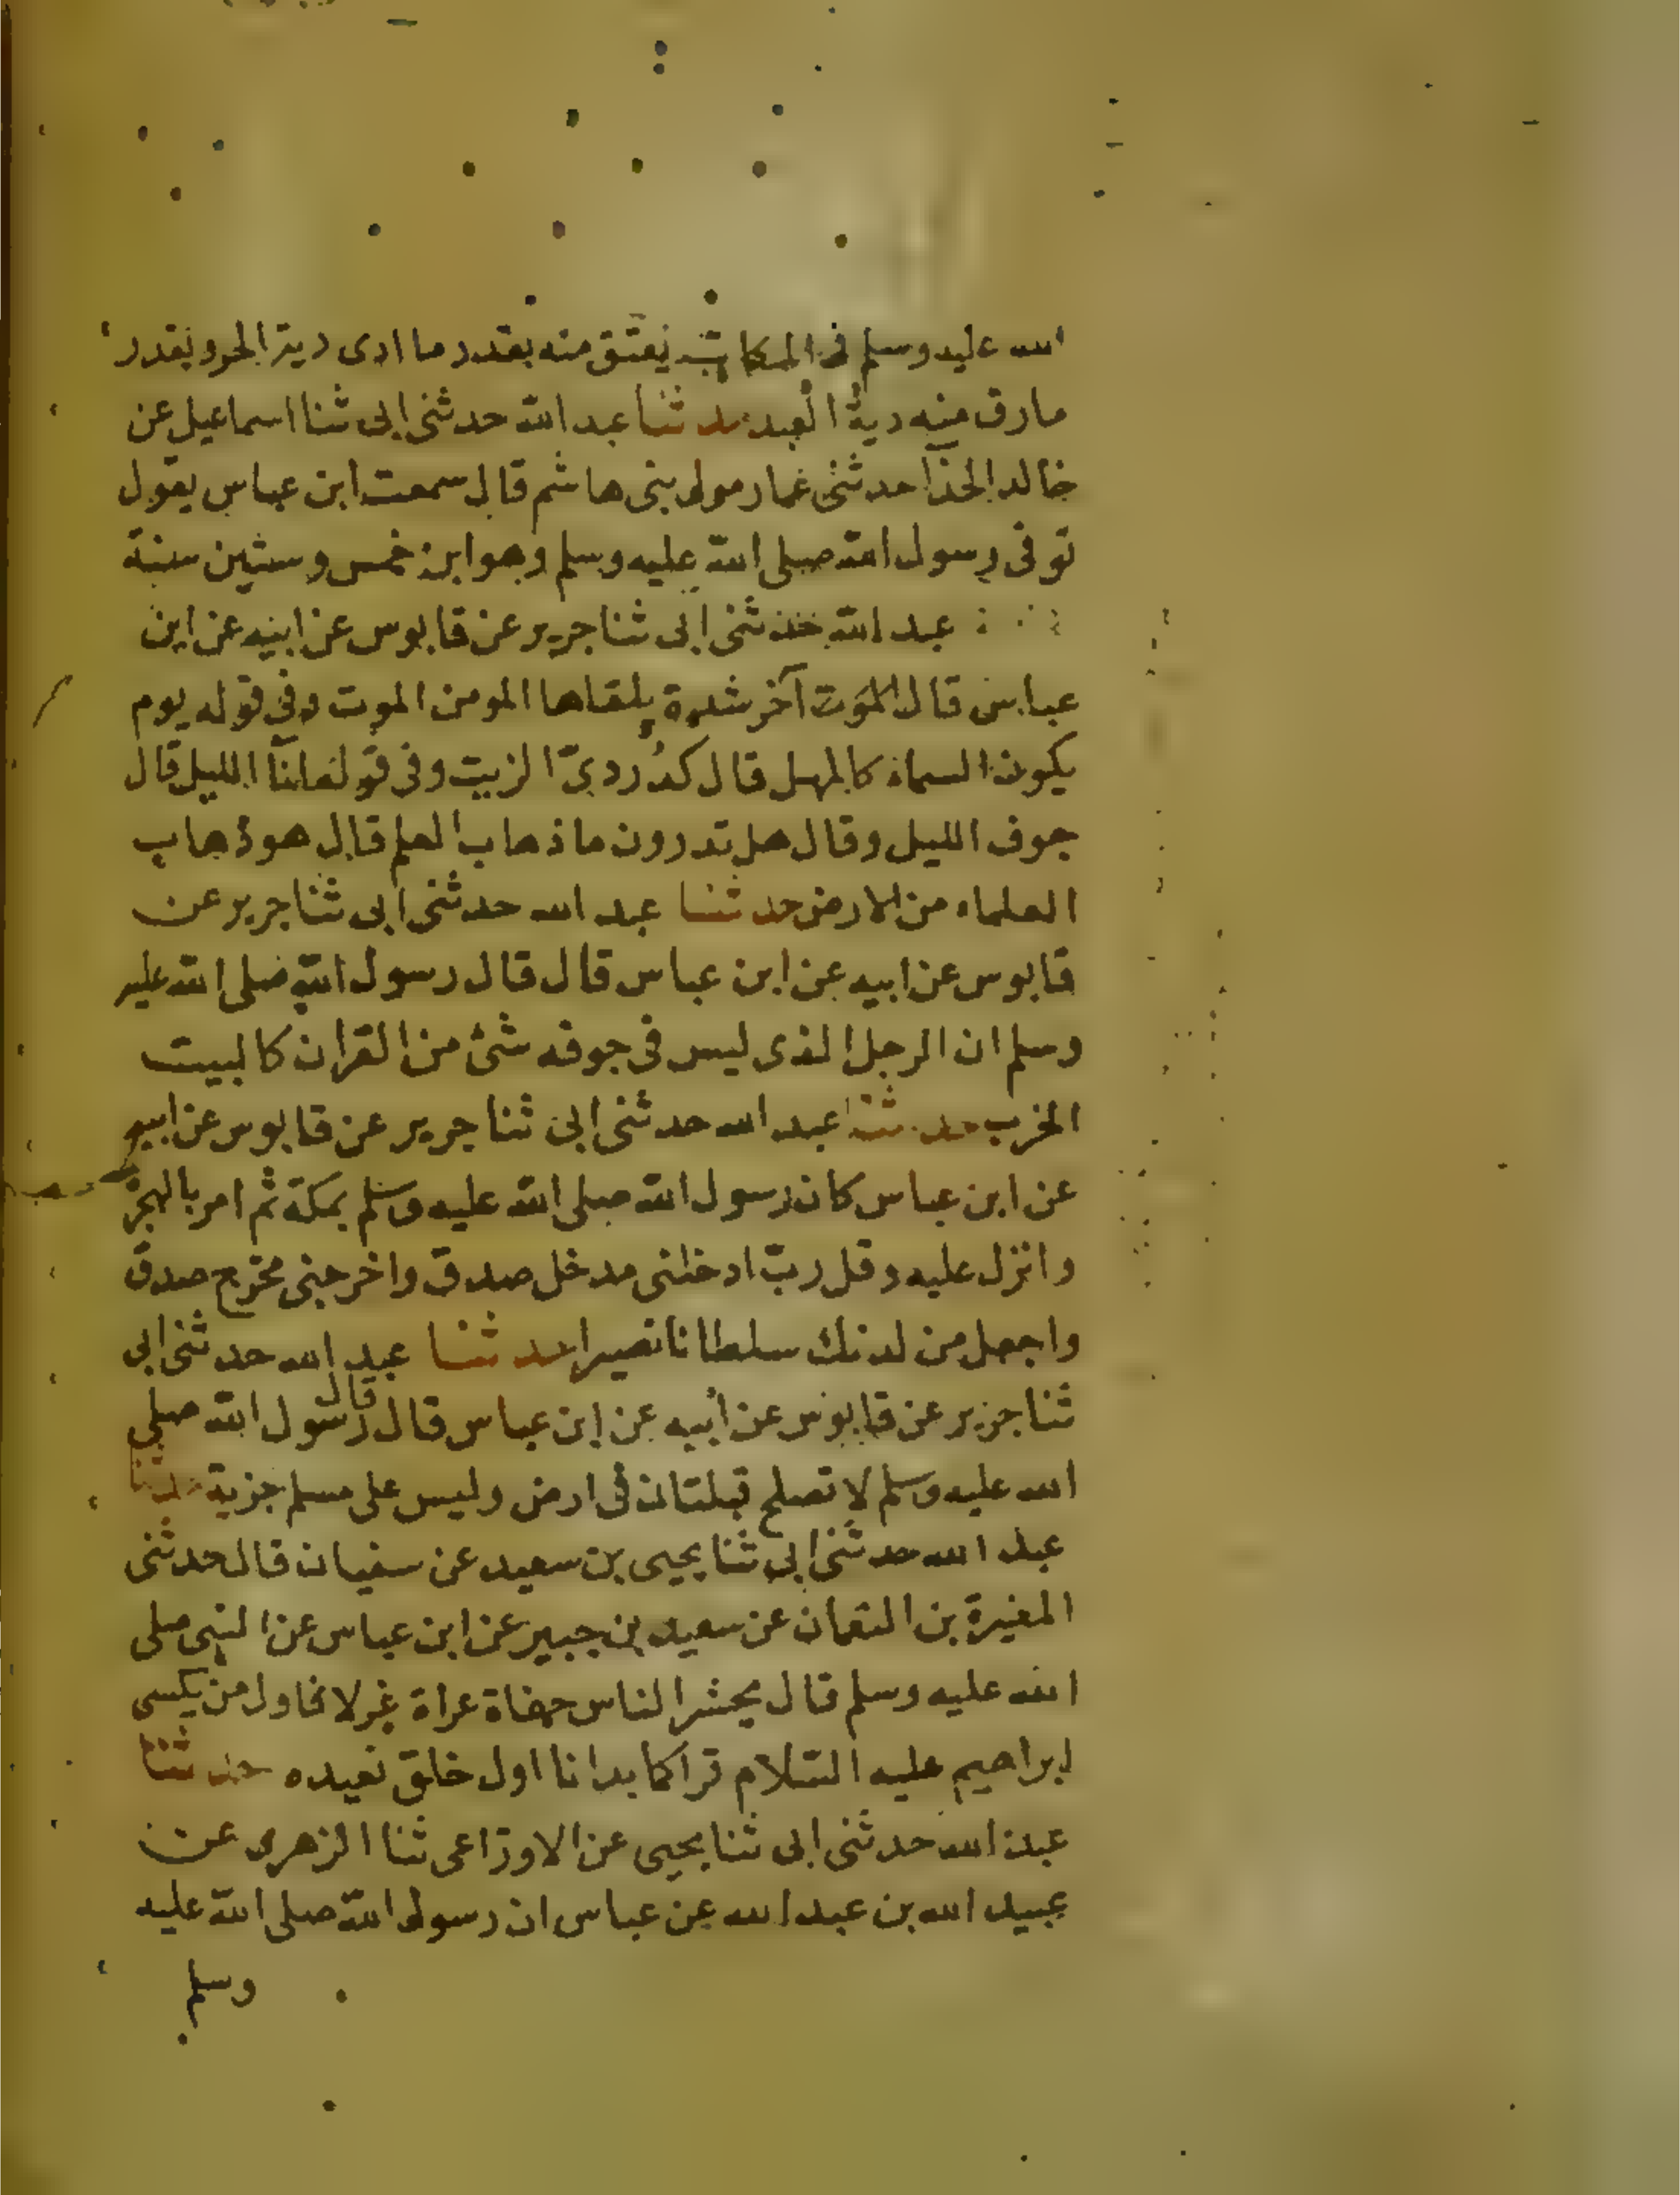 الله عليه وسلم في المكاتب يعتق منه بقدر ما ادى دية الحر وبقدر
مارق منه دية العبد حدثنا عبد الله حدثني ابي ثنا اسماعيل عن
خالد الحذا حدثني عمار مولى بني هاشم قال سمعت ابن عباس يقول
توفى رسول الله صلى الله عليه وسلم وهو ابن خمس وستين سنة
عبد الله حدثني ابي ثنا جرير عن قابوس عن ابيه عن ابن
عباس قال الموت آخر شدة يلقاها المومن الموت وفي قوله يوم
يكون السماء كالمهل قال كدُرديّ الزيت وفي قوله آنآ الليل قال
جوف الليل وقال هل تدرون ما ذهاب العلم قال هو ذهاب
العلماء من الارض حدثنا عبد الله حدثني ابي ثنا جرير عن
قابوس عن ابيه عن ابن عباس قال قال رسول الله صلى الله عليه
وسلم ان الرجل الذى ليس في جوفه شئ من القران كالبيت
الخرب حدثنا عبد الله حدثني ابي ثنا جرير عن قابوس عن ابيه
عن ابن عباس كان رسول الله صلى الله عليه وسلم بمكة ثم امر بالهجرة
وانزل عليه وقل ربّ ادخلنى مدخل صدق واخرجنى مخرج صدق
واجعل من لدنك سلطانا نصيرا حدثنا عبد الله حدثني ابي
ثنا جرير عن قابوس عن ابيه عن ابن عباس قال قال رسول الله صلى
الله عليه وسلم لا تصلح قبلتان في ارض وليس على مسلم جزية حدثنا
عبد الله حدثني ابي ثنا يحيى بن سعيد عن سفيان قال حدثنى
المغيرة بن النعمان عن سعيد بن جبير عن ابن عباس عن النبي صلى
الله عليه وسلم قال يحشر الناس حفاة عراة غرلا فاول من يكسى
ابراهيم عليه السّلام قرا كما بدانا اول خلق نعيده حدثنا
عبد الله حدثني ابي ثنا يحيى عن الاوزاعى ثنا الزهرى عن
عبيد الله بن عبد الله عن عباس ان رسول الله صلى الله عليه
وسلم